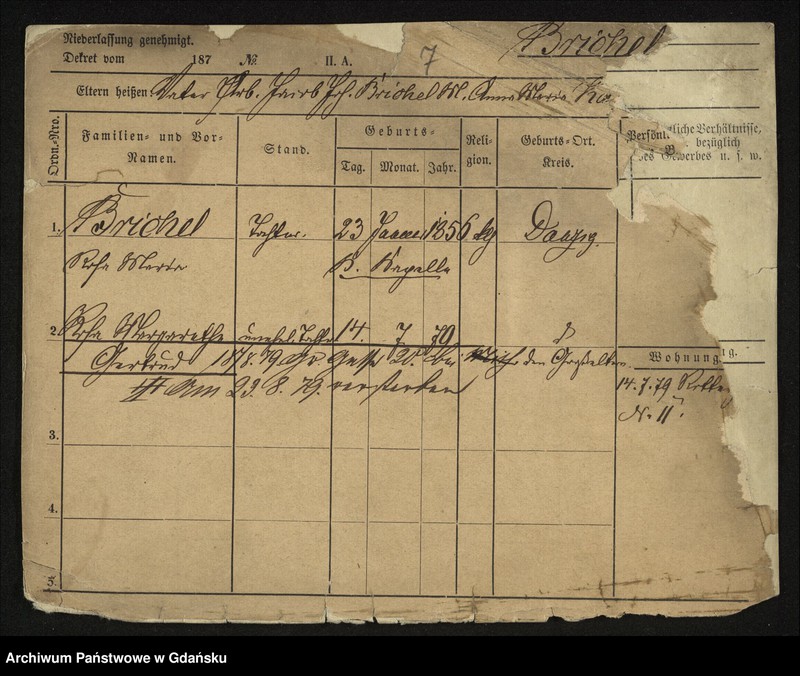 Niederlassung genehmigt.
Dekret vom 187 № II. A. 7 Brichel
Eltern heißen Vater Arb. Jacob Joh. Brichel M. Anna Maria
Ordn.-Nro. Familien- und Vor-Namen. Stand. Geburts- Tag. Monat. Jahr. Religion. Geburts-Ort. Kreis. Persönliche Verhältnisse, bezüglich des Gewerbes u. s. w.
1. Brichel Tochter. 23 Januar 1856 kg Danzig.
Rosa Maria B. Kapelle
2. Rosa Margarethe unehel. Tochter 14. 7 79
Gertrud 18/8. 79 Gr. Gasse bei den Großeltern.
Wohnung.
Am 23. 8. 79. verstorben
14. 7. 79
N. 11.
3.
4.
5.
Archiwum Państwowe w Gdańsku